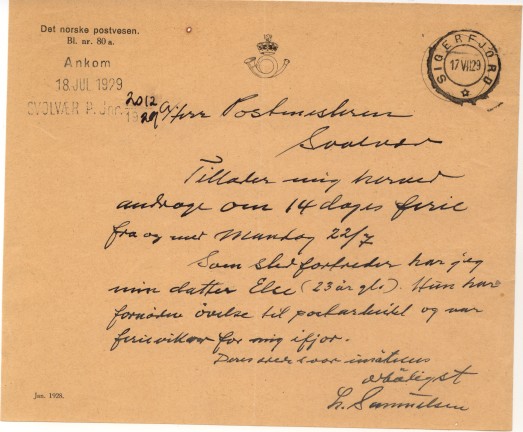 Det norske postvesen.
Bl. nr. 80 a.
Ankom
18 JUL 1929
SVOLVÆR P. Jnr. 2012
19 29
SIGERFJORD
17 VII 29
Herr Postmesteren
Svolvær
Tillader mig herved
andrage om 14 dages ferie
fra og med Mandag 22/7
Som stedfortreder har jeg
min datter Else (23 år gl.). Hun har
fornøden øvelse til postarbeidet og var
ferievikar for mig ifjor.
Deres svar imøtesees
ærbødigst
L. Samuelsen
Jan. 1928.